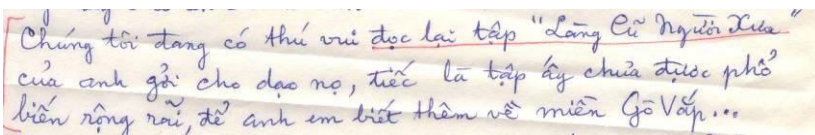 Chúng tôi đang có thú vui đọc lại tập "Làng Cũ Người Xưa"
của anh gởi cho dạo nọ, tiếc là tập ấy chưa được phổ
biến rộng rãi, để anh em biết thêm về miền Gò Vấp...